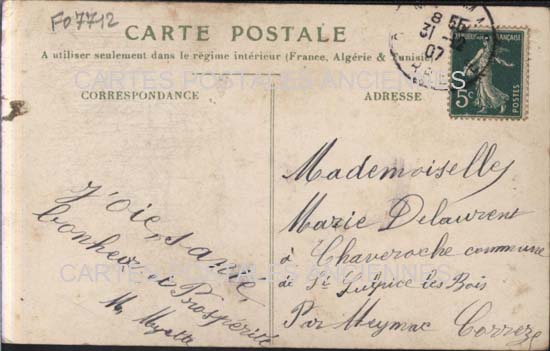 Fo 7712
CARTE POSTALE
A utiliser seulement dans le régime intérieur (France, Algérie & Tunisie)
CARTES POSTALES ANCIENNES
CORRESPONDANCE
ADRESSE
8 55
31 12
07
RÉPUBLIQUE FRANÇAISE
5c
POSTES
J'oie, santé,
bonheur et Prospérité
Mademoiselles
Marie Delaurent
à Chaveroche commune
de St Sulpice les Bois
Par Meymac Corrèze
CARTES POSTALES ANCIENNES